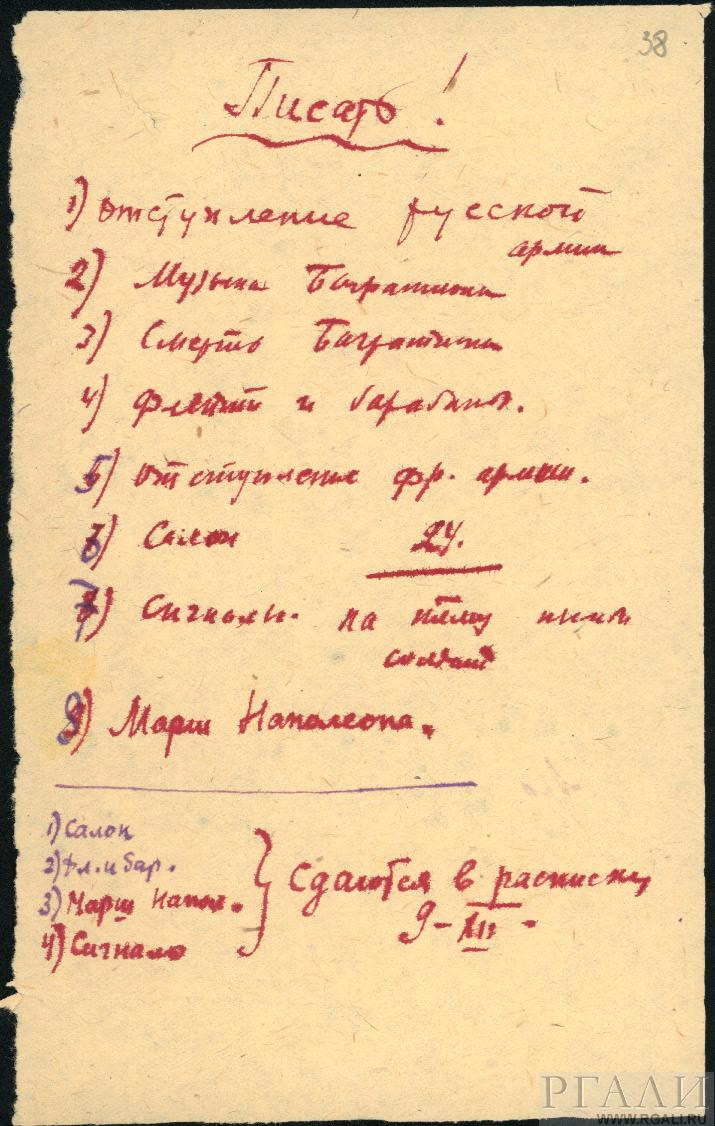 38
Писать!
1) отступление русской
армии
2) Музыка Багратиона
3) Смерть Багратиона
4) Флейты и барабаны.
5) отступление фр. армии.
6) Салон 24.
7) Сигналы. на тему
солдат
8) Марш Наполеона.
1) Салон
2) Фл. и бар.
3) Марш Напол.
4) Сигналы
Сдаются в расписку
9-XII-
РГАЛИ
WWW.RGALI.RU